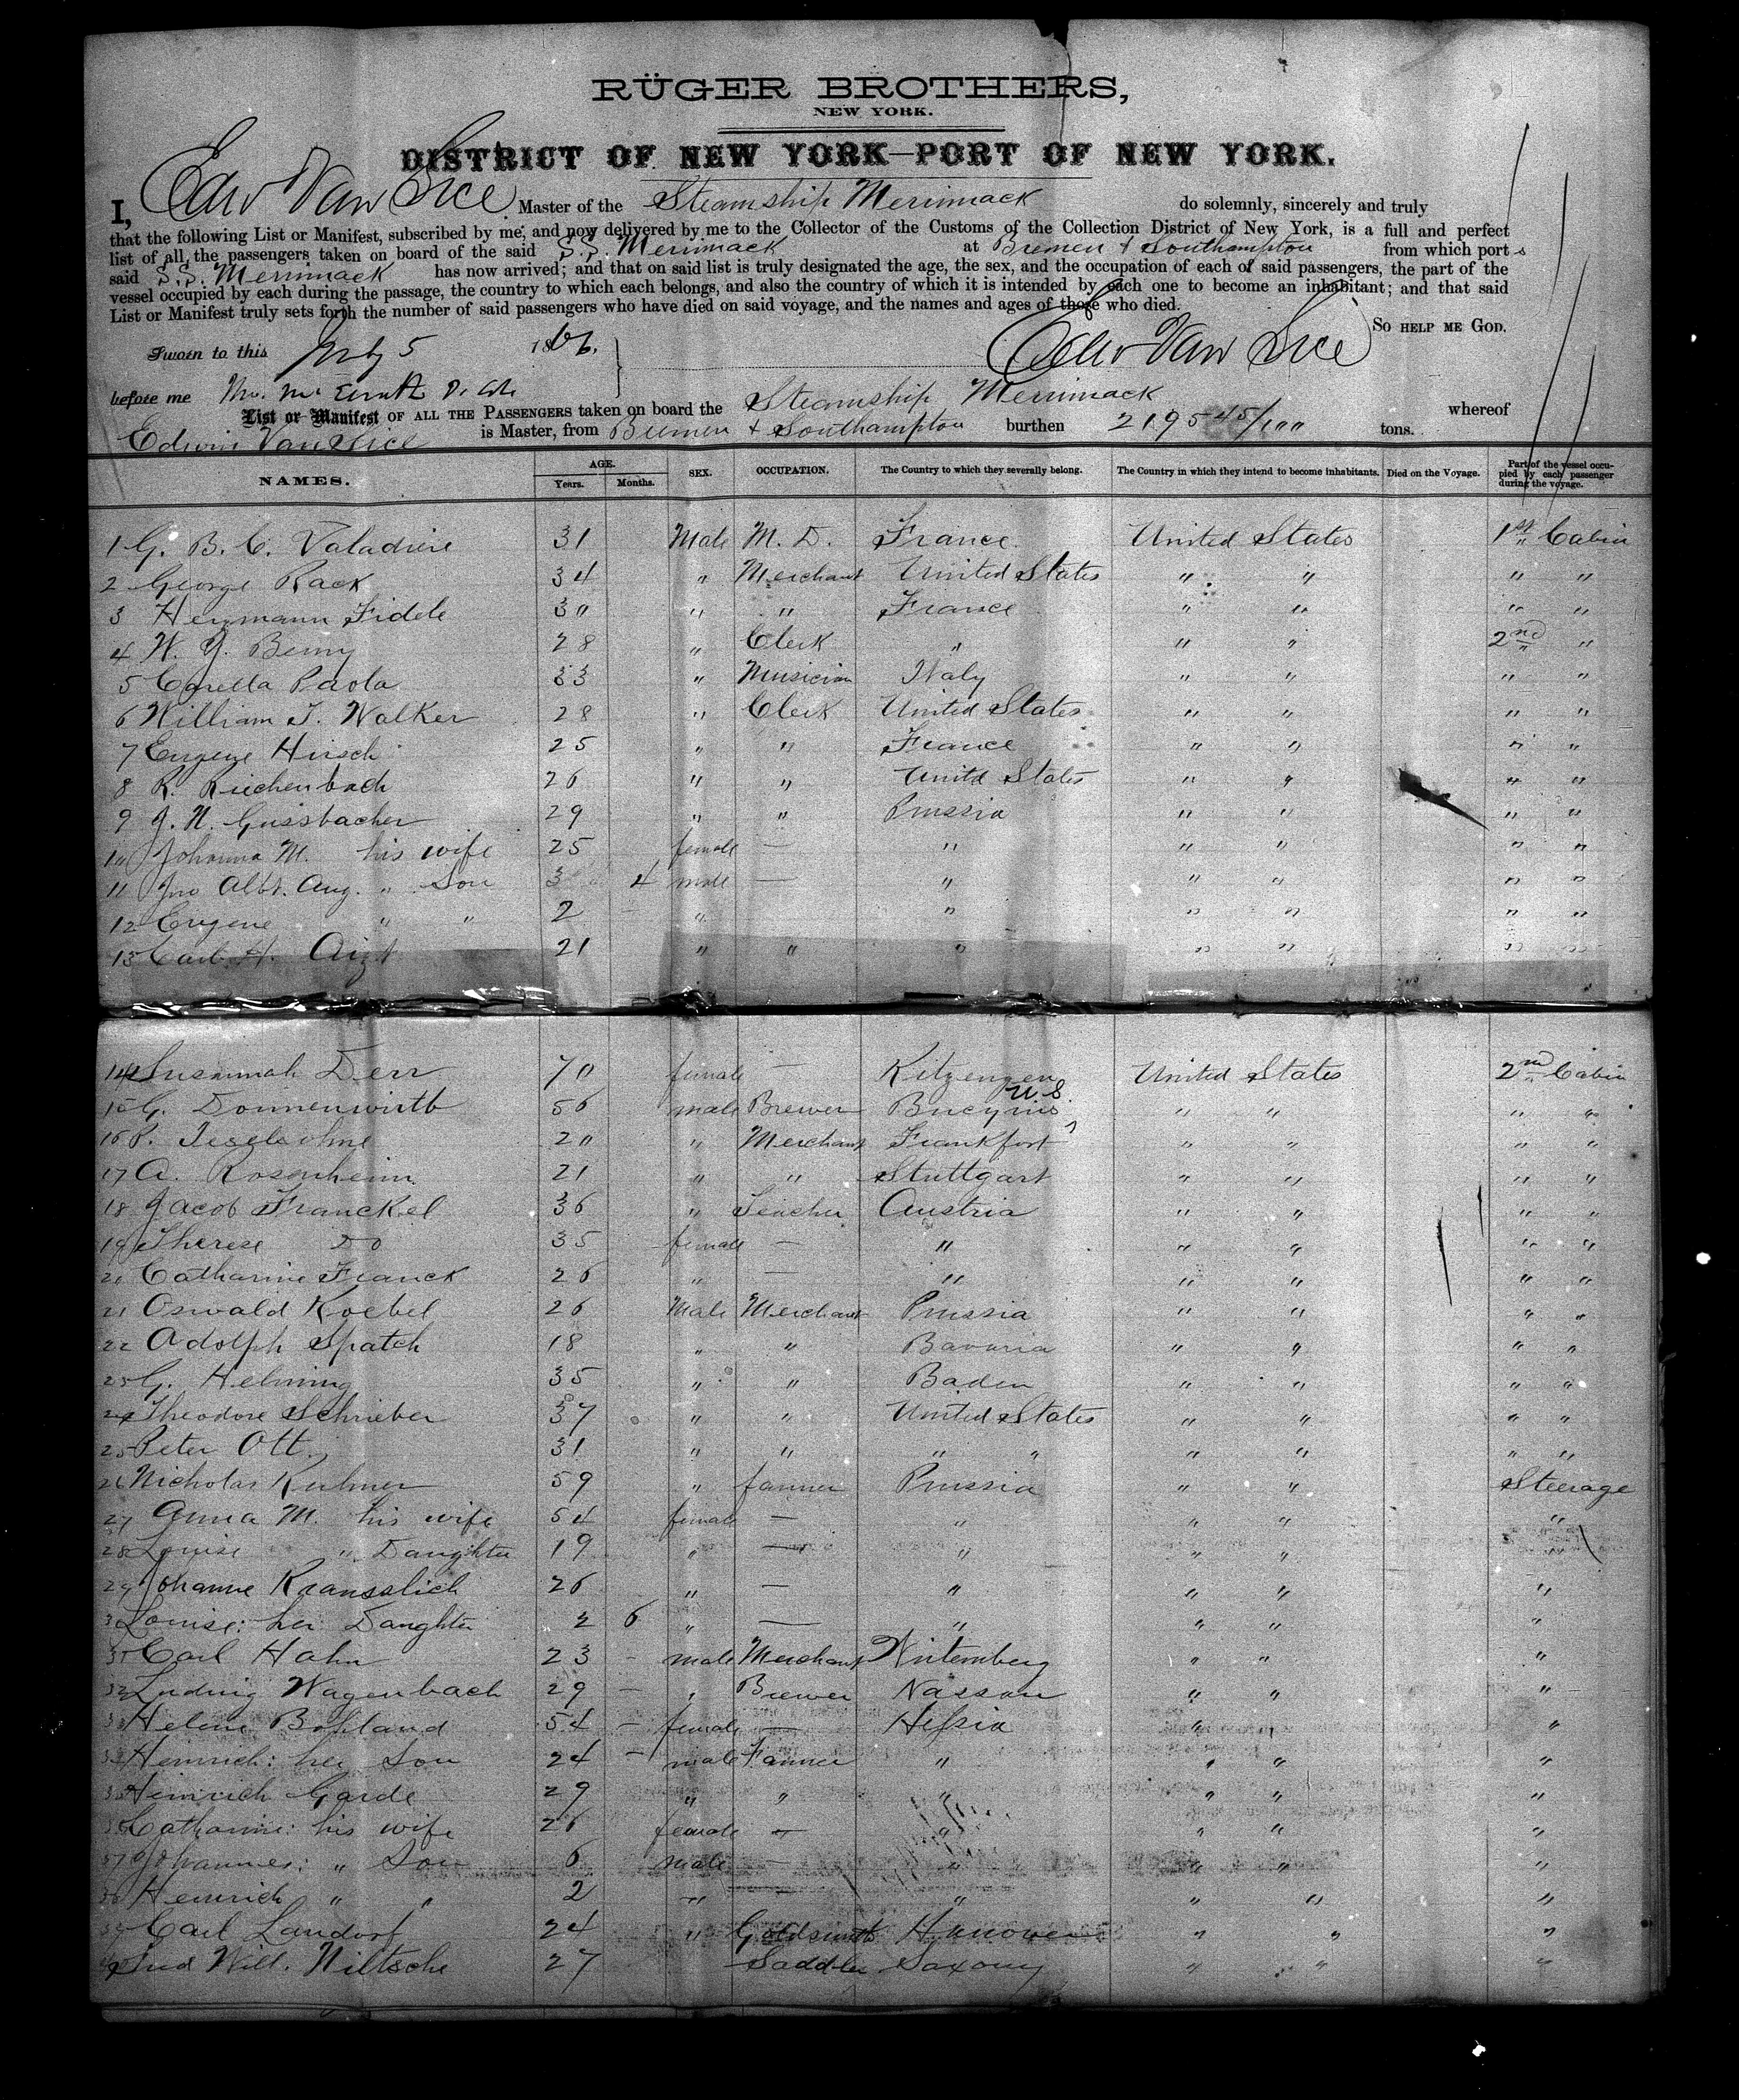 RÜGER BROTHERS,
NEW YORK.
DISTRICT OF NEW YORK—PORT OF NEW YORK.
I, Edw Van Sice Master of the Steamship Merrimack do solemnly, sincerely and truly
that the following List or Manifest, subscribed by me, and now delivered by me to the Collector of the Customs of the Collection District of New York, is a full and perfect
list of all the passengers taken on board of the said S.S. Merrimack at Bremen & Southampton from which ports
said S.S. Merrimack has now arrived; and that on said list is truly designated the age, the sex, and the occupation of each of said passengers, the part of the
vessel occupied by each during the passage, the country to which each belongs, and also the country of which it is intended by each one to become an inhabitant; and that said
List or Manifest truly sets forth the number of said passengers who have died on said voyage, and the names and ages of those who died.
SO HELP ME GOD.
Sworn to this July 5 1866. Edw Van Sice
before me
List or Manifest OF ALL THE PASSENGERS taken on board the Steamship Merrimack whereof
Edwin Van Sice is Master, from Bremen & Southampton burthen 2195 45/100 tons.
NAMES. AGE. Years. Months. SEX. OCCUPATION. The Country to which they severally belong. The Country in which they intend to become inhabitants. Died on the Voyage. Part of the vessel occupied by each passenger during the voyage.
1 G. B. C. Valadiere 31 Male M. D. France United States 1st Cabin
2 George Rack 34 " Merchant United States " " " "
3 Herrmann Fidele 30 " " France " " " "
4 W. J. Berny 28 " Clerk " " " 2nd "
5 Carella Paola 33 " Musician Italy " " " "
6 William T. Walker 28 " Clerk United States " " " "
7 Eugene Hirsch 25 " " France " " " "
8 R. Riechenbach 26 " " United States " " " "
9 J. N. Geissbacher 29 " " Prussia " " " "
10 Johanna M. his wife 25 female — " " " " "
11 Jno Albt. Aug. " Son 3 4 male — " " " " "
12 Eugene " " 2 — " " " " " "
13 Carl H. Aizt 21 " " " " " " "
14 Susannah Derr 70 female — Kitzengen United States 2nd Cabin
15 G. Donnenwirth 56 male Brewer Bucyrus U.S. " " " "
16 20 " Merchant Frankfort " " " "
17 A. Rosenheim 21 " " Stuttgart " " " "
18 Jacob Franckel 36 " Teacher Austria " " " "
19 Therese Do 35 female — " " " " "
20 Catharine Franck 26 " — " " " " "
21 Oswald Koebel 26 Male Merchant Prussia " " " "
22 Adolph Spatch 18 " " Bavaria " " " "
23 G. Helming 35 " " Baden " " " "
24 Theodore Schrieber 37 " " United States " " " "
25 Peter Ott. 31 " " " " " " " "
26 Nicholas Kuhner 59 " farmer Prussia " " Steerage
27 Anna M. his wife 54 female — " " " "
28 Louise " Daughter 19 " — " " " "
29 Johanne Kransslich 26 " — " " " "
30 Louise: her Daughter 2 6 " — " " " "
31 Carl Hahn 23 — male Merchant Wirtemberg " " "
32 Ludwig Wagenbach 29 — " Brewer Nassau " " "
33 Helene Bohland 54 — female — Hessia " " "
34 Heinrich: her Son 24 — male Farmer " " " "
35 Heinrich Garde 29 " " " " " "
36 Catharine: his wife 26 female — " " " "
37 Johannes: " Son 6 male — " " " "
38 Heinrich " " 2 " — " " " "
39 Carl Landorf 24 " Goldsmith Hanover " " "
40 Will. Niltsche 27 Saddler Saxony " " "